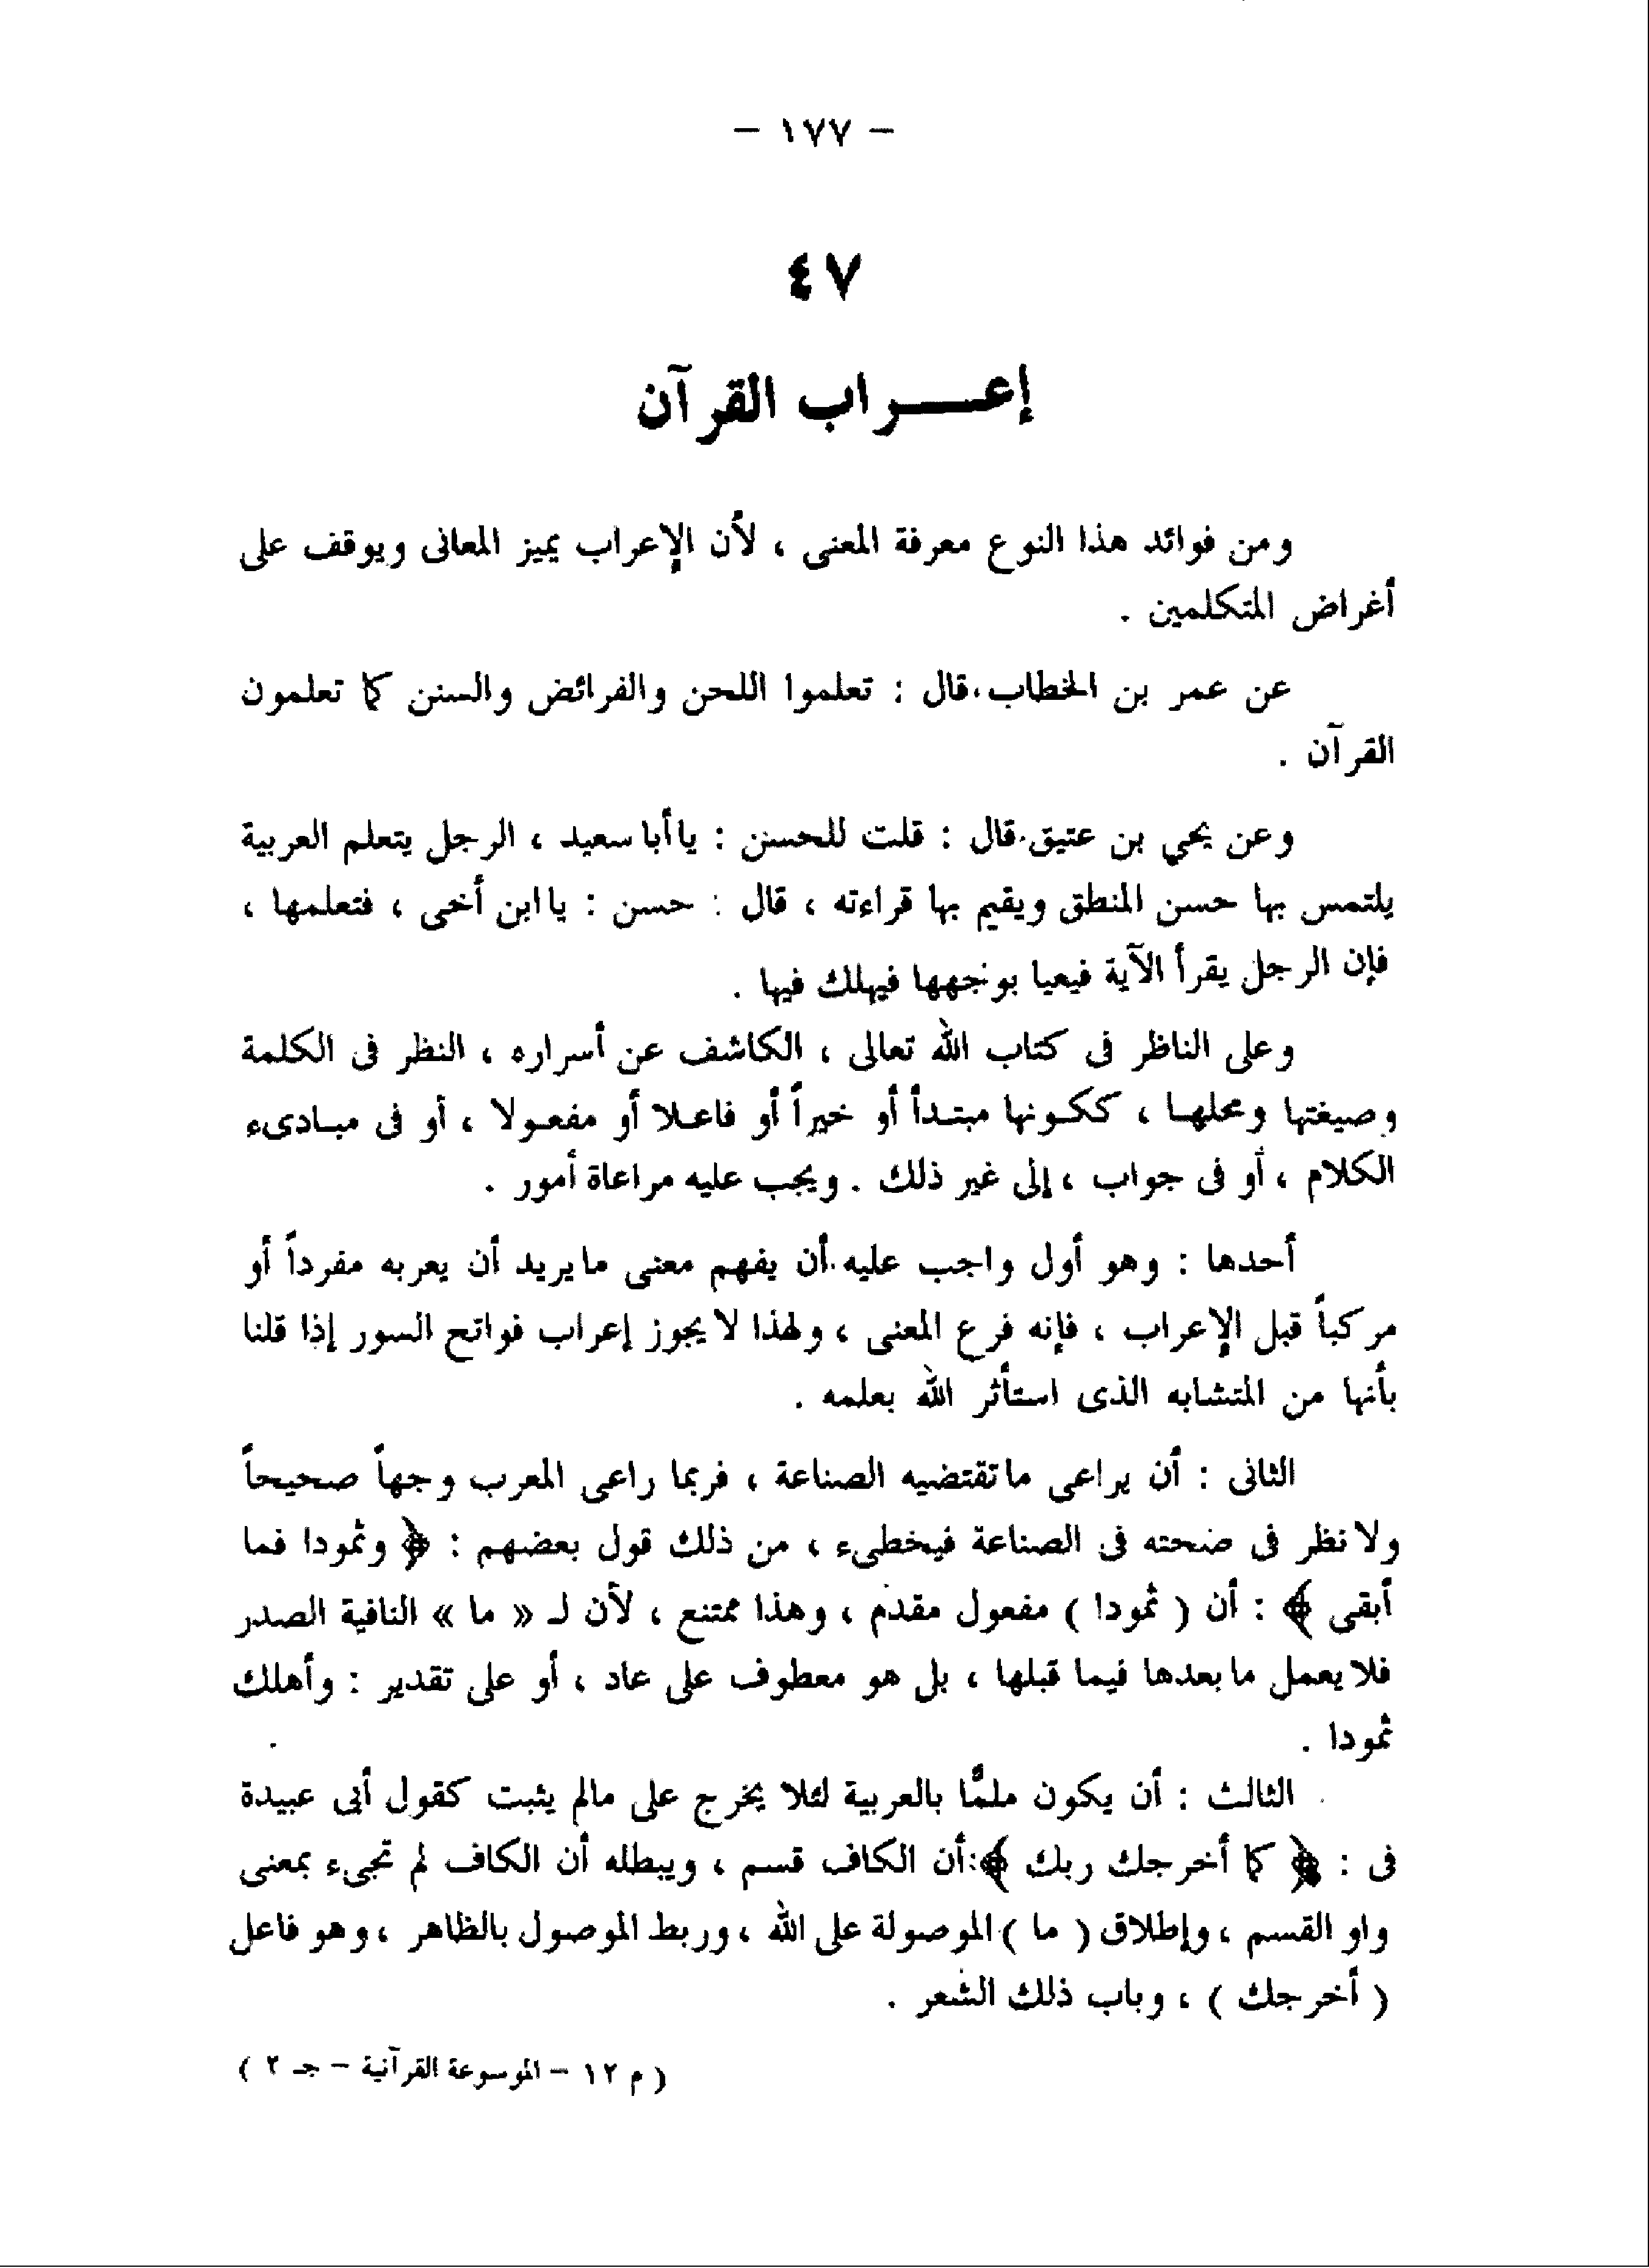 – ١٧٧ –
٤٧
إعــراب القرآن
ومن فوائد هذا النوع معرفة المعنى ، لأن الإعراب يميز المعانى ويوقف على
أغراض المتكلمين .
عن عمر بن الخطاب،قال : تعلموا اللحن والفرائض والسنن كما تعلمون
القرآن .
وعن يحي بن عتيق.قال : قلت للحسن : يا أبا سعيد ، الرجل يتعلم العربية
يلتمس بها حسن المنطق ويقيم بها قراءته ، قال : حسن : يا ابن أخى ، فتعلمها ،
فإن الرجل يقرأ الآية فيعيا بوجهها فيهلك فيها .
وعلى الناظر فى كتاب الله تعالى ، الكاشف عن أسراره ، النظر فى الكلمة
وصيغتها ومحلهـا ، ككـونها مبتـدأ أو خبراً أو فاعـلا أو مفعـولا ، أو فى مبـادىء
الكلام ، أو فى جواب ، إلى غير ذلك . ويجب عليه مراعاة أمور .
أحدها : وهو أول واجب عليه.أن يفهم معنى ما يريد أن يعربه مفرداً أو
مركباً قبل الإعراب ، فإنه فرع المعنى ، ولهذا لا يجوز إعراب فواتح السور إذا قلنا
بأنها من المتشابه الذى استأثر الله بعلمه .
الثانى : أن يراعى ما تقتضيه الصناعة ، فربما راعى المعرب وجهاً صحيحاً
ولا نظر فى صحته فى الصناعة فيخطىء ، من ذلك قول بعضهم : ﴿ وثمودا فما
أبقى ﴾ : أن ( ثمودا ) مفعول مقدم ، وهذا ممتنع ، لأن لـ « ما » النافية الصدر
فلا يعمل ما بعدها فيما قبلها ، بل هو معطوف على عاد ، أو على تقدير : وأهلك
ثمودا .
الثالث : أن يكون ملمًّا بالعربية لئلا يخرج على مالم يثبت كقول أبى عبيدة
فى : ﴿ كما أخرجك ربك ﴾:أن الكاف قسم ، ويبطله أن الكاف لم تجىء بمعنى
واو القسم ، وإطلاق ( ما ) الموصولة على الله ، وربط الموصول بالظاهر ، وهو فاعل
( أخرجك ) ، وباب ذلك الشعر .
( م ١٢ – الموسوعة القرآنية – جـ ٢ )